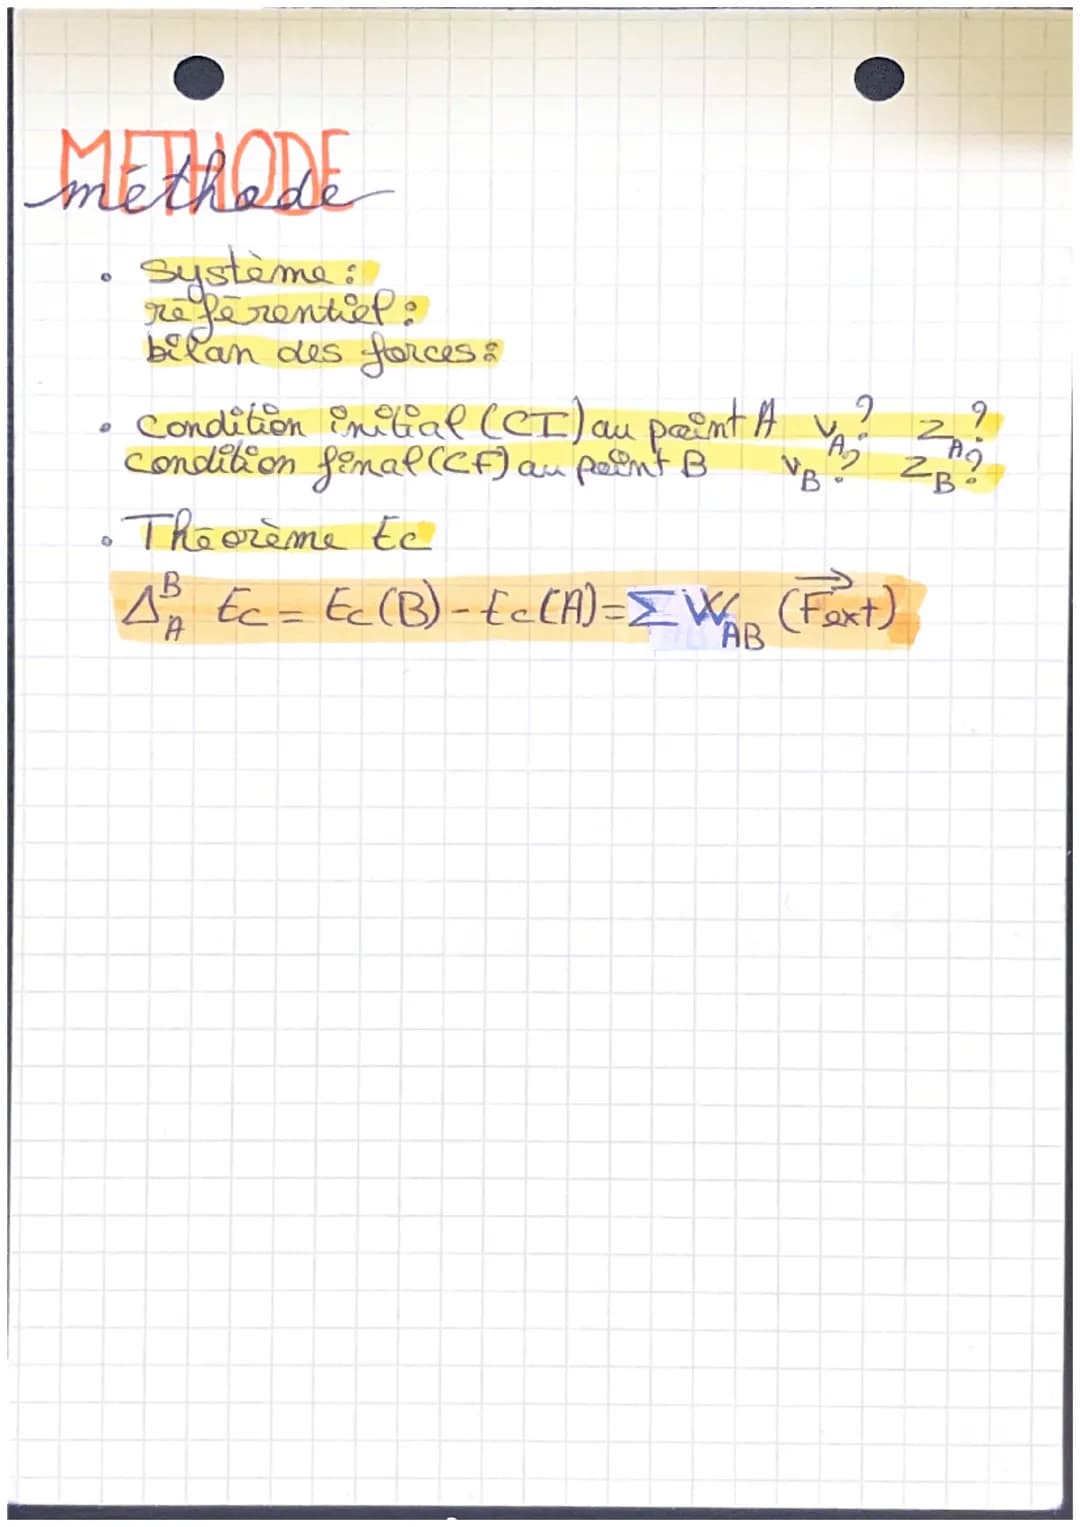 METHODE
méthode
• système :
référentiel :
bilan des forces :
• Condition initial (CI) au point A v_A ? z_A ?
Condition final (CF) au point B v_B ? z_B ?
• Théorème Ec
Δ_A^B Ec = Ec(B) - Ec(A) = Σ W_AB (F⃗ext)